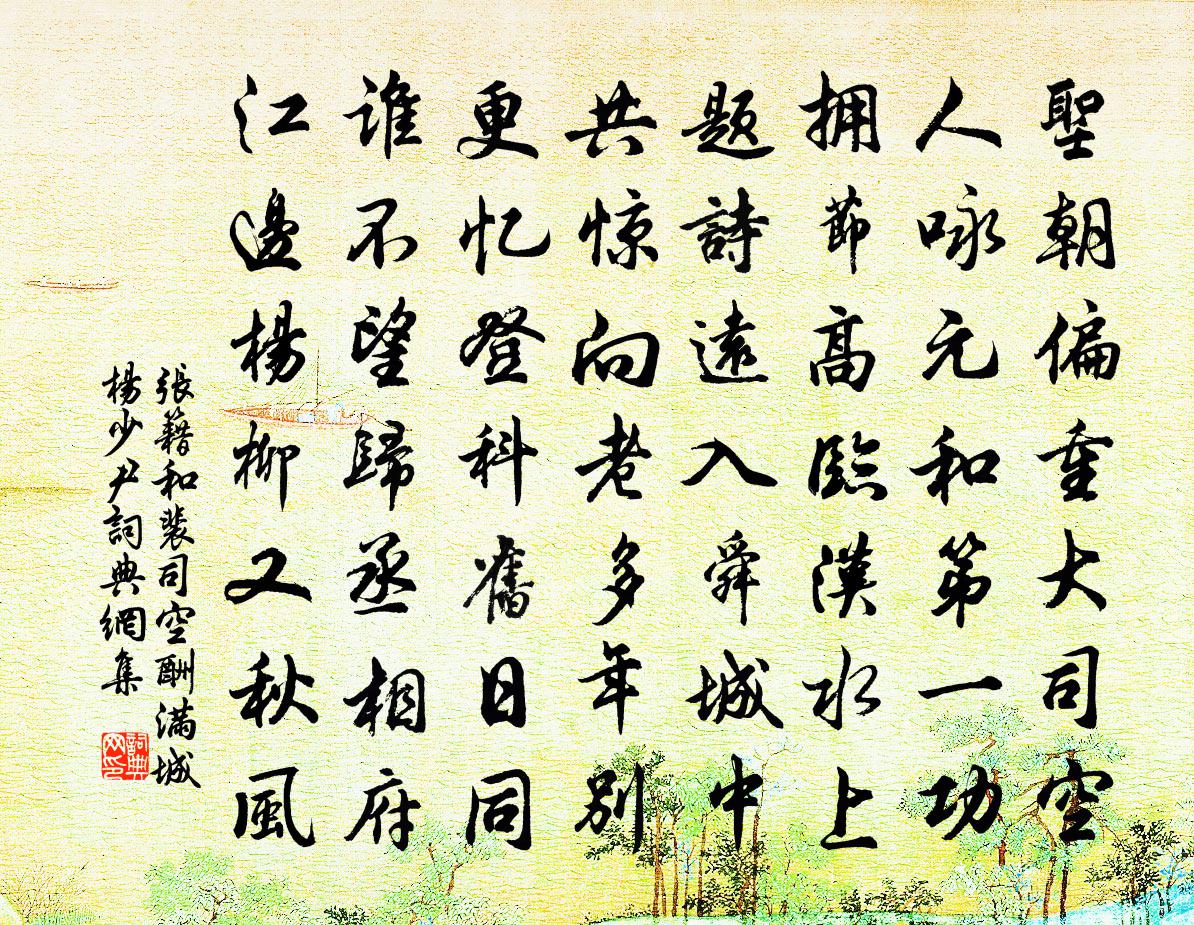 聖朝偏重大司空
人咏元和第一功
拥節高臨漢水上
题詩遠入舜城中
共惊向老多年别
更忆登科舊日同
谁不望歸丞相府
江邊楊柳又秋風
張籍和裴司空酬滿城
楊少尹詞典網集
詞典网印